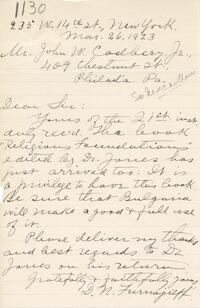 1130
235 W. 14th St., New York.
Mar. 26, 1923
Mr. John W. Cadbery, Jr.,
409 Chestnut St.,
Philada. Pa.
Dear Sir:
Yours of the 21st inst.
duly rec'd. The book
"Religious Foundations"
edited by Dr. Jones has
just arrived too. It is
a privilege to have this book.
Be sure that Bulgaria
will make a good & full use
of it.
Please deliver my thanks
and best regards to Dr.
Jones on his return.
Gratefully & faithfully yours,
D. N. Furnajieff